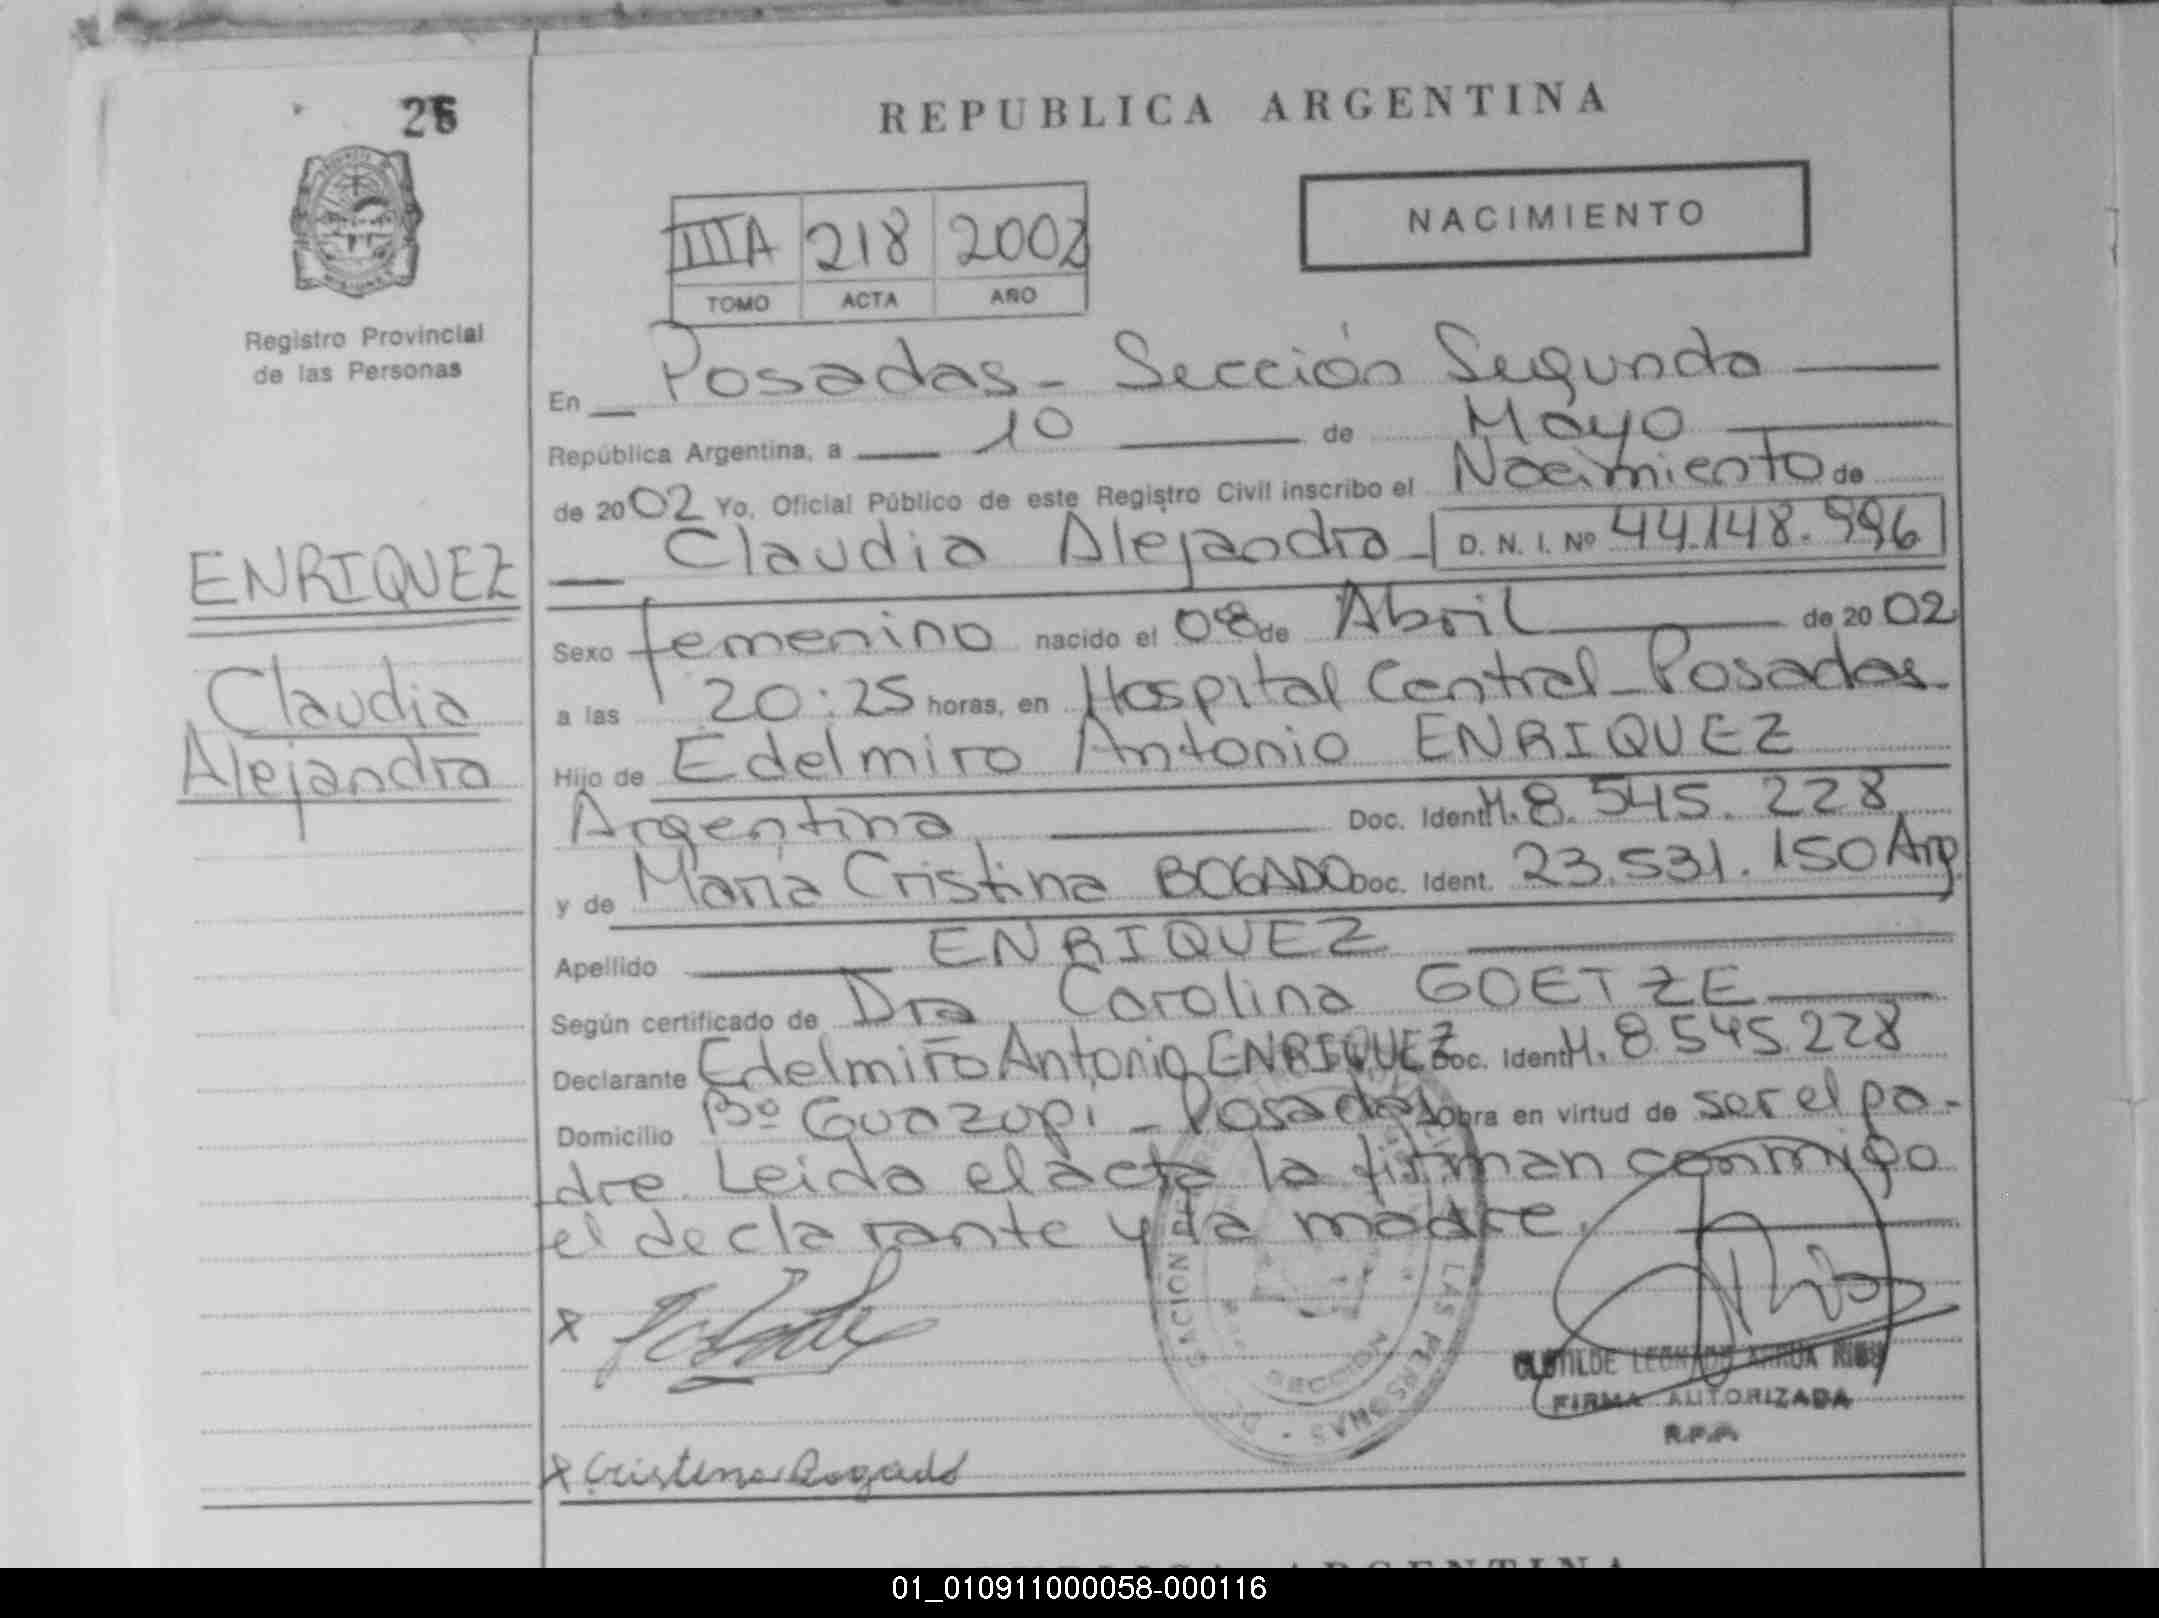 26
REPUBLICA ARGENTINA
NACIMIENTO
IIIA 218 2002
TOMO ACTA AÑO
Registro Provincial
de las Personas
En Posadas - Sección Segunda
República Argentina, a 10 de Mayo
de 2002 Yo, Oficial Público de este Registro Civil inscribo el Nacimiento de
Claudia Alejandra D. N. I. Nº 44.148.996
ENRIQUEZ
Claudia
Alejandra
Sexo femenino nacido el 08 de Abril de 2002
a las 20:25 horas, en Hospital Central - Posadas -
Hijo de Edelmiro Antonio ENRIQUEZ
Argentina Doc. Ident. M. 8.545.228
y de María Cristina BOGADO Doc. Ident. 23.531.150 Arg.
Apellido ENRIQUEZ
Según certificado de Dra Carolina GOETZE
Declarante Edelmiro Antonio ENRIQUEZ Doc. Ident. M. 8.545.228
Domicilio Bº Guazupi - Posadas Obra en virtud de ser el pa-
dre. Leida el acta la firman conmigo
el declarante y la madre.
x
CLOTILDE ARRUA
FIRMA AUTORIZADA
R.P.P.
LAS PERSONAS
SECCION
x Cristina Bogado
REPUBLICA ARGENTINA
01_010911000058-000116